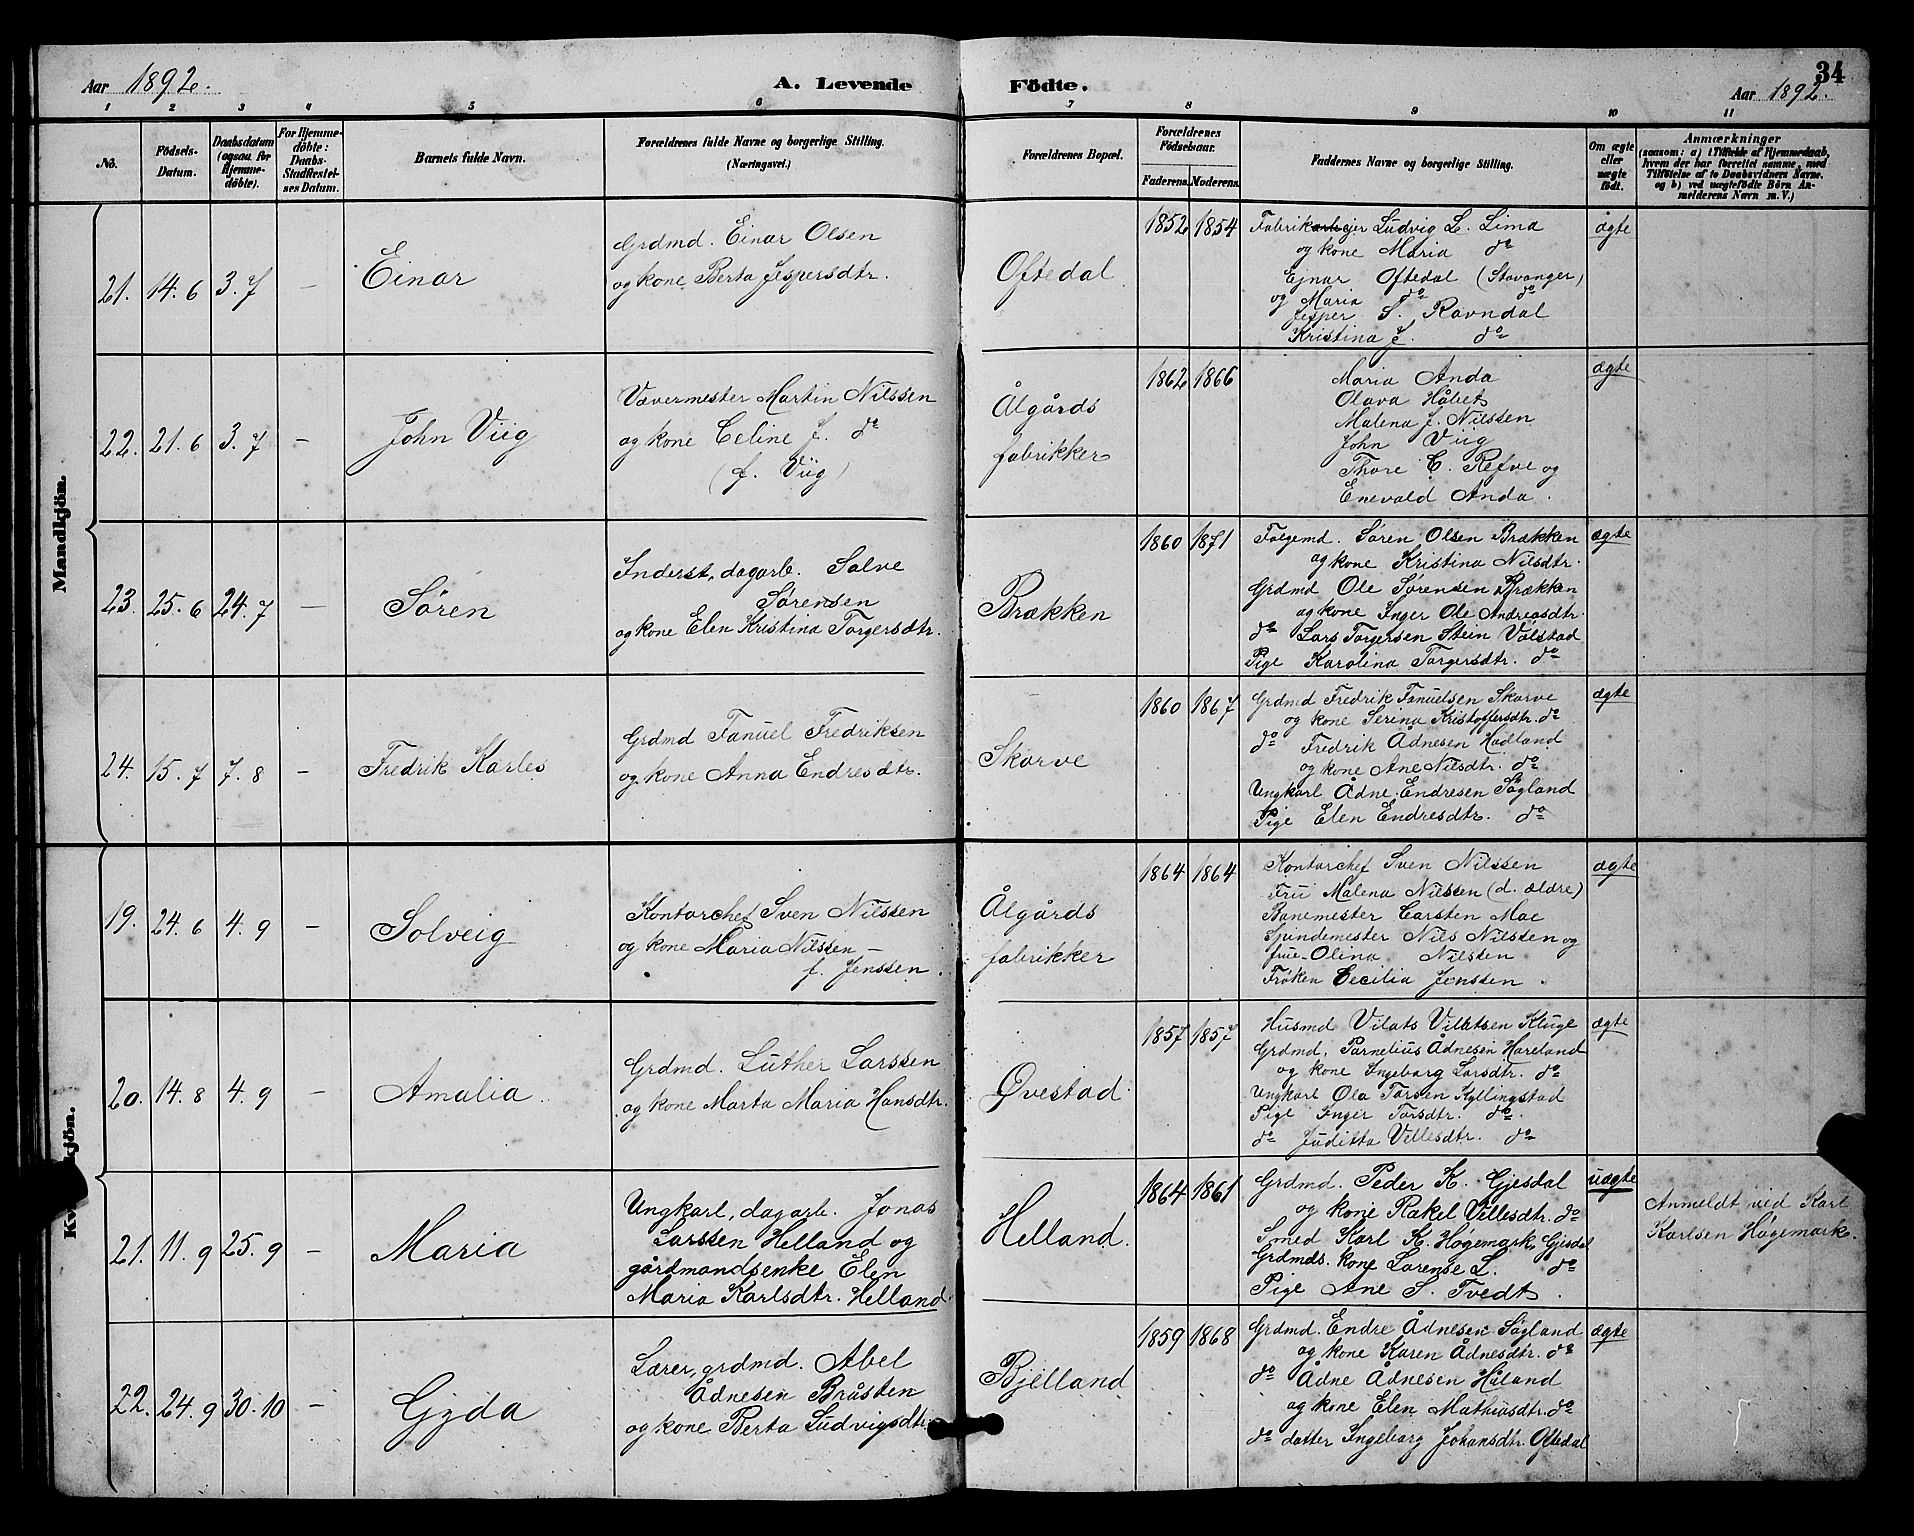 Aar 1892.
A. Levende Födte.
34
Aar 1892.
1 2 3 4 5 6 7 8 9 10 11
No.
Födsels-
Datum.
Daabsdatum
(ogsaa for
Hjemme-
døbte).
For Hjemme-
döbte:
Daabs-
Stadfæstel-
ses Datum.
Barnets fulde Navn.
Forældrenes fulde Navne og borgerlige Stilling.
(Næringsvei.)
Forældrenes Bopæl.
Forældrenes
Födselsaar.
Faderens. Moderens.
Faddernes Navne og borgerlige Stilling.
Om ægte
eller
uægte
födt.
Anmærkninger
(saasom: a) i Tilfælde af Hjemmedaab,
hvem der har forrettet samme, med
Tilföielse af to Daabsvidners Navne,
og b) ved uægtefödte Börn An-
melderens Navn m. V.)
Mandkjön.
21. 14.6 3.7 —
Einar
Grdmd. Einar Olsen
og kone Berta Jespersdtr.
Oftedal
1852 1854
Fabrikejer Ludvig L. Lima
og kone Maria do
Ejnar Oftedal (Stavanger)
og Maria do do
Jesper S. Ravndal
Kristina J. do
ægte
22. 21.6 3.7 —
John Viig
Vævermester Martin Nilssen
og kone Celine J. do
(f. Viig)
Ålgårds
fabrikker
1862 1866
Maria Anda
Olava Håbet
Malena J. Nilssen
John Viig
Thore C. Refve og
Enevald Anda.
ægte
23. 25.6 24.7 —
Søren
Inderst, dagarb. Salve
Sørensen
og kone Elen Kristina Torgersdtr.
Brækken
1860 1871
Følgemd. Søren Olsen Brækken
og kone Kristina Nilsdtr.
Grdmd Ole Sørensen Brækken
og kone Inger Ole Andreasdtr.
do Lars Torgersen Stein Vølstad
Pige Karolina Torgersdtr. do
ægte
24. 15.7 7.8 —
Fredrik Karles
Grdmd Fanuel Fredriksen
og kone Anna Endresdtr.
Skarve
1860 1867
Grdmd Fredrik Fanuelsen Skarve
og kone Serina Kristoffersdtr. do
do Fredrik Ådnesen Hadland
og kone Ane Nilsdtr. do
Ungkarl Ådne Endresen Søgland
Pige Elen Endresdtr. do
ægte
Kvindekjön.
19. 24.6 4.9 —
Solveig
Kontorchef Sven Nilssen
og kone Maria Nilssen —
f. Jenssen.
Ålgårds
fabrikker
1864 1864
Kontorchef Sven Nilssen
Fru Malena Nilssen (d. ældre)
Banemester Carsten Moe
Spindemester Nils Nilssen og
frue Olina Nilsten
Frøken Cecilia Jenssen.
ægte
20. 14.8 4.9 —
Amalia.
Grdmd. Luther Larssen
og kone Marta Maria Hansdtr.
Øvestad.
1857 1857
Husmd Vilats Villatsen Kluge
Grdmd. Pernelius Ådnesen Hareland
og kone Ingeborg Larsdtr. do
Ungkarl Ola Torsen Kyllingstad
Pige Inger Torsdtr. do.
do Juditta Villesdtr. do
ægte
21. 11.9 25.9 —
Maria
Ungkarl, dagarb. Jonas
Larssen Helland og
gårdmandsenke Elen
Maria Karlsdtr. Helland
Helland.
1864 1861
Grdmd. Peder K. Gjesdal
og kone Rakel Villesdtr. do
Smed Karl K. Høgemark, Gjesdal
Grdmds. kone Lorense L. do
Pige Ane S. Tvedt.
uægte
Anmeldt ved Karl
Karlsen Høgemark.
22. 24.9 30.10 —
Gyda
Lærer, grdmd. Abel
Ådnesen Bråsten
og kone Berta Ludvigsdtr.
Bjelland
1859 1868
Grdmd. Endre Ådnesen Søgland
og kone Karen Ådnesdtr. do
do Ådne Ådnesen Håland
og kone Elen Mathiasdtr. do
do datter Ingeborg Johansdtr. Oftedal
ægte